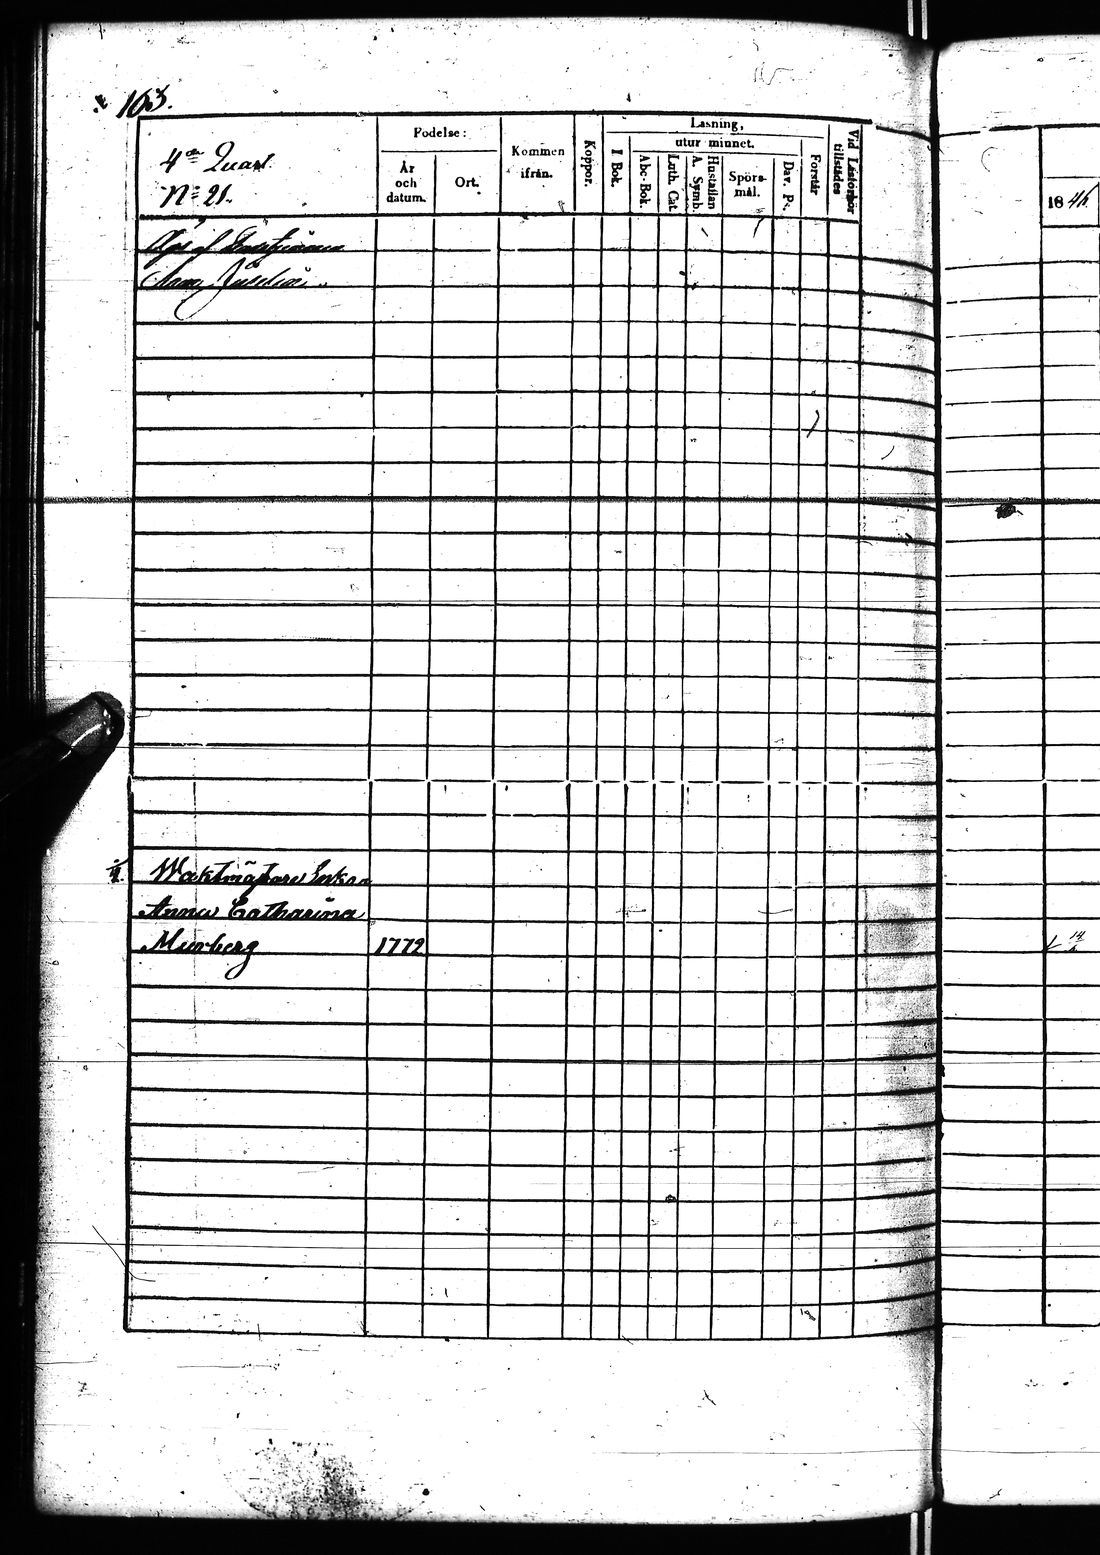 163.
4de Quart.
N= 21.
Födelse:
År
och
datum.
Ort.
Kommen
ifrån.
Koppor.
Läsning,
I Bok.
utur minnet.
Abc-Bok
Luth. Cat.
A. Symb.
Hustaflan
Spörs-
mål.
Dav. Ps.
Förstår
Vid Läsförhör
tillstädes
1846
af
Waktmästare Enkan
Anna Catharina
Murberg 1772
14